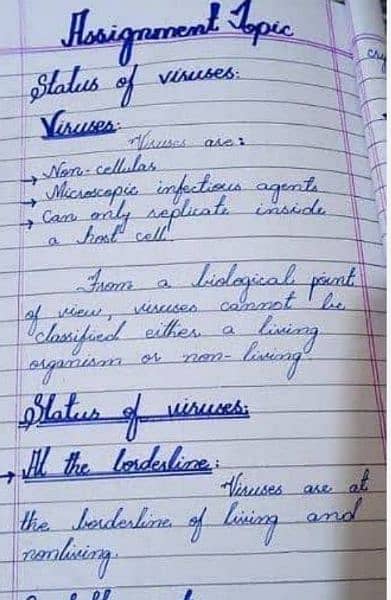 Assignment Topic
Status of viruses:
Viruses:
Viruses are:
→ Non-cellular
→ Microscopic infectious agents
→ Can only replicate inside
a host cell.
From a biological point
of view, viruses cannot be
classified either a living
organism or non-living.
Status of viruses:
→ At the borderline:
Viruses are at
the borderline of living and
nonliving.